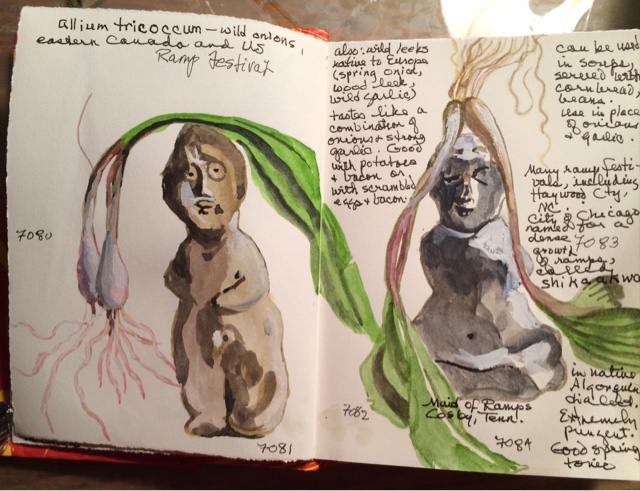 allium tricoccum — wild onions,
eastern Canada and US
Ramp Festival
7080
7081
also: wild leeks
native to Europe
(spring onion,
wood leek,
wild garlic)
tastes like a
combination of
onions & strong
garlic. Good
with potatoes
& bacon or
with scrambled
eggs & bacon.
7082
Maid of Ramps
Cosby, Tenn.
7084
can be used
in soups,
served with
cornbread,
beans.
use in place
of onions
& garlic.
Many ramp festi-
vals, including
Haywood City,
NC.
City of Chicago
named for a
dense 7083
growth
of ramps,
called
shikaakwa
in native
Algonquin
dialect.
Extremely
pungent.
Good spring
tonic